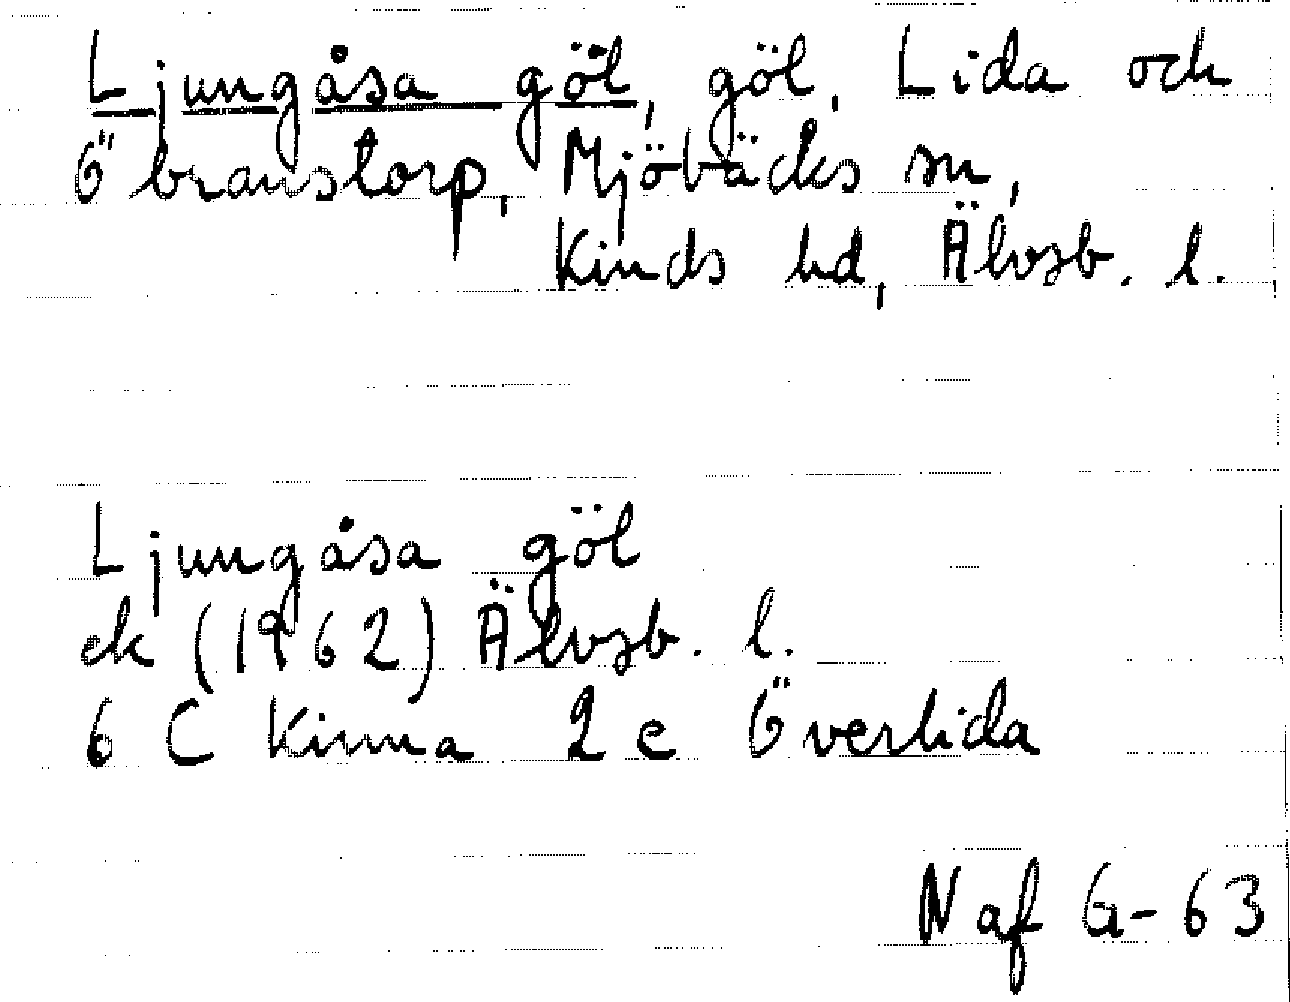 Ljungåsa göl, göl, Lida och
Öbranstorp, Mjöbäcks sn,
Kinds hd, Älvsb. l.
Ljungåsa göl
ek (1962) Älvsb. l.
6 C Kinna 2 e Överlida
Naf G-63